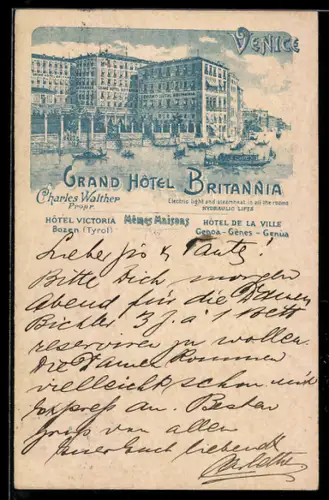 VENICE
GRAND HÔTEL BRITANNIA
Charles Walther
Propr.
Electric light and steamheat in all the rooms
HYDRAULIC LIFTS
HÔTEL VICTORIA
Bozen (Tyrol)
Mêmes Maisons
HÔTEL DE LA VILLE
Genoa - Gênes - Genua
Liebe & Tante!
Bitte Dich morgen
Abend für die Damen
Bichler 3 Z. à 1 Bett
reservieren zu wollen.
Die Damen kommen
vielleicht schon mit
Express an. Besten
Gruß von allen
Euer Euch liebend